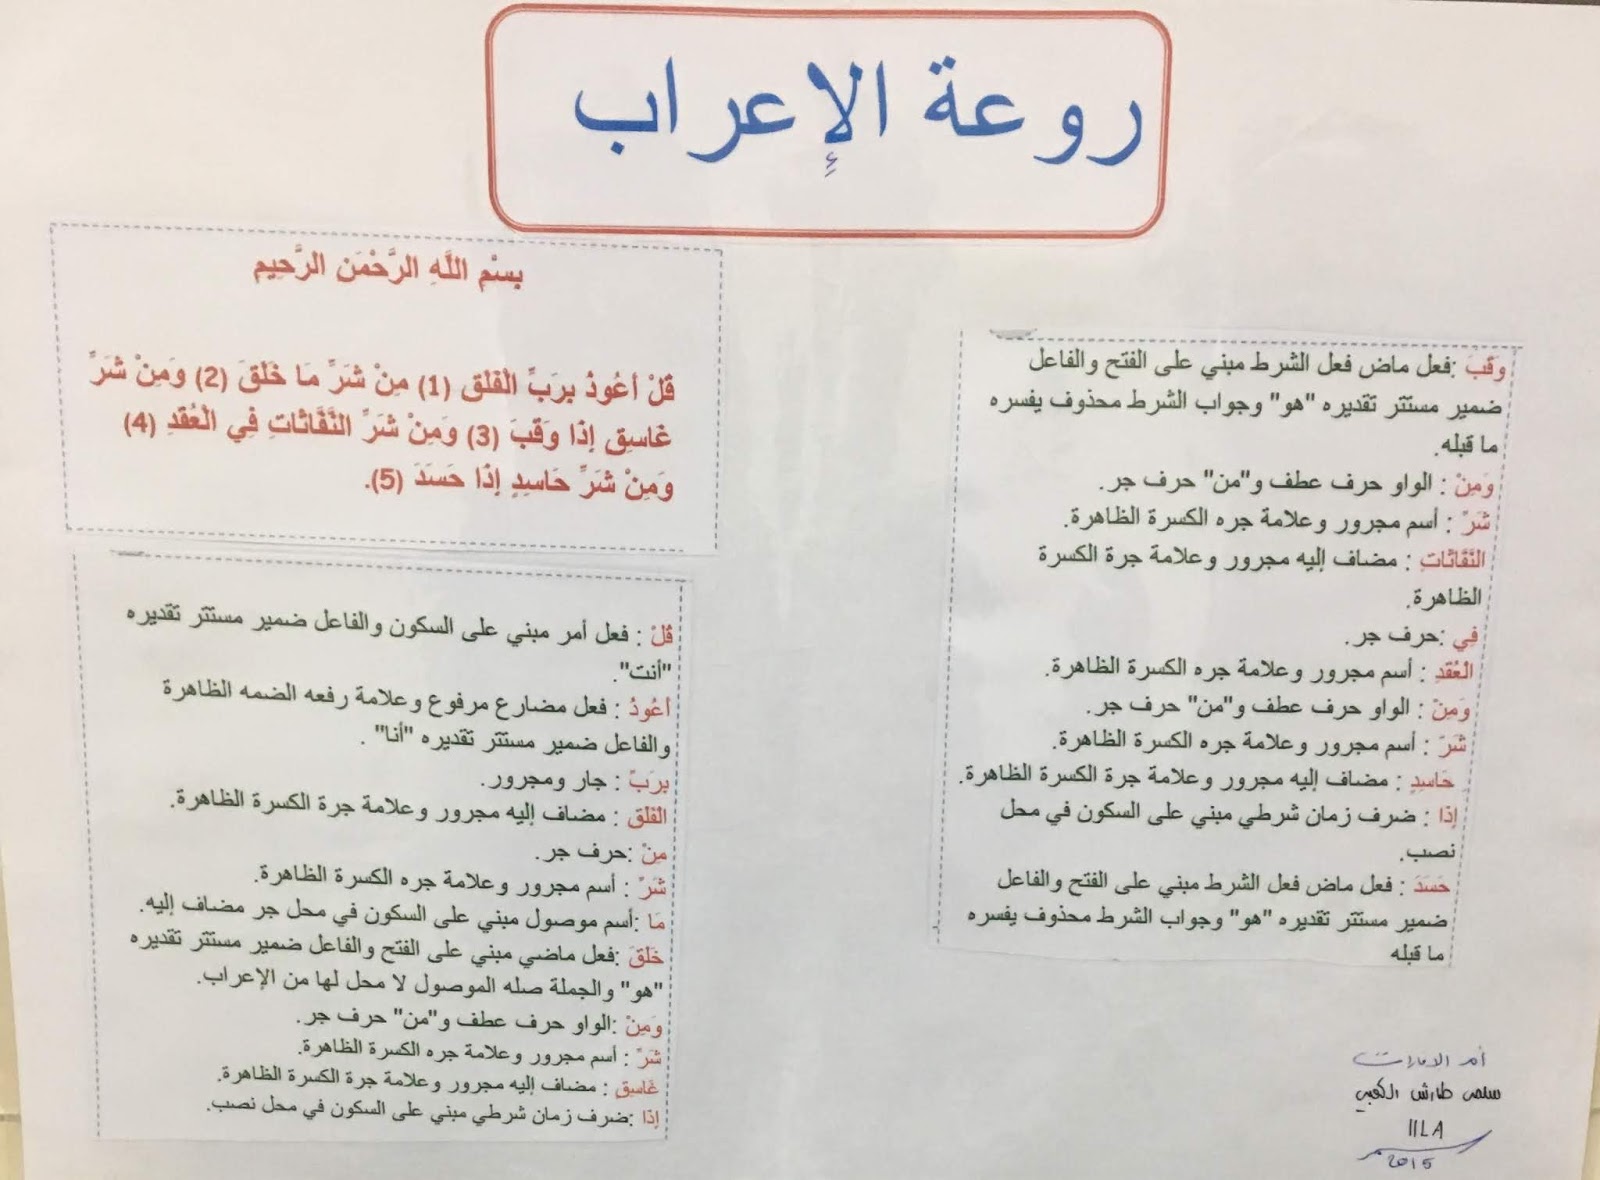 روعة الإعراب
بِسْمِ اللَّهِ الرَّحْمَنِ الرَّحِيمِ
قُلْ أَعُوذُ بِرَبِّ الْفَلَقِ (1) مِنْ شَرِّ مَا خَلَقَ (2) وَمِنْ شَرِّ
غَاسِقٍ إِذَا وَقَبَ (3) وَمِنْ شَرِّ النَّفَّاثَاتِ فِي الْعُقَدِ (4)
وَمِنْ شَرِّ حَاسِدٍ إِذَا حَسَدَ (5).
قُلْ : فعل أمر مبني على السكون والفاعل ضمير مستتر تقديره
"أنت".
أَعُوذُ : فعل مضارع مرفوع وعلامة رفعه الضمه الظاهرة
والفاعل ضمير مستتر تقديره "أنا" .
بِرَبِّ : جار ومجرور.
الْفَلَقِ : مضاف إليه مجرور وعلامة جرة الكسرة الظاهرة.
مِنْ :حرف جر.
شَرِّ : أسم مجرور وعلامة جره الكسرة الظاهرة.
مَا :أسم موصول مبني على السكون في محل جر مضاف إليه.
خَلَقَ :فعل ماضي مبني على الفتح والفاعل ضمير مستتر تقديره
"هو" والجملة صله الموصول لا محل لها من الإعراب.
وَمِنْ :الواو حرف عطف و"من" حرف جر.
شَرِّ : أسم مجرور وعلامة جره الكسرة الظاهرة.
غَاسِقٍ : مضاف إليه مجرور وعلامة جرة الكسرة الظاهرة.
إِذَا :ضرف زمان شرطي مبني على السكون في محل نصب.
وَقَبَ :فعل ماض فعل الشرط مبني على الفتح والفاعل
ضمير مستتر تقديره "هو" وجواب الشرط محذوف يفسره
ما قبله.
وَمِنْ : الواو حرف عطف و"من" حرف جر.
شَرِّ : أسم مجرور وعلامة جره الكسرة الظاهرة.
النَّفَّاثَاتِ : مضاف إليه مجرور وعلامة جرة الكسرة
الظاهرة.
فِي :حرف جر.
الْعُقَدِ : أسم مجرور وعلامة جره الكسرة الظاهرة.
وَمِنْ : الواو حرف عطف و"من" حرف جر.
شَرِّ : أسم مجرور وعلامة جره الكسرة الظاهرة.
حَاسِدٍ : مضاف إليه مجرور وعلامة جرة الكسرة الظاهرة.
إِذَا : ضرف زمان شرطي مبني على السكون في محل
نصب.
حَسَدَ : فعل ماض فعل الشرط مبني على الفتح والفاعل
ضمير مستتر تقديره "هو" وجواب الشرط محذوف يفسره
ما قبله
أم الامارات
سلمى طارش الكعبي
11LA
2015